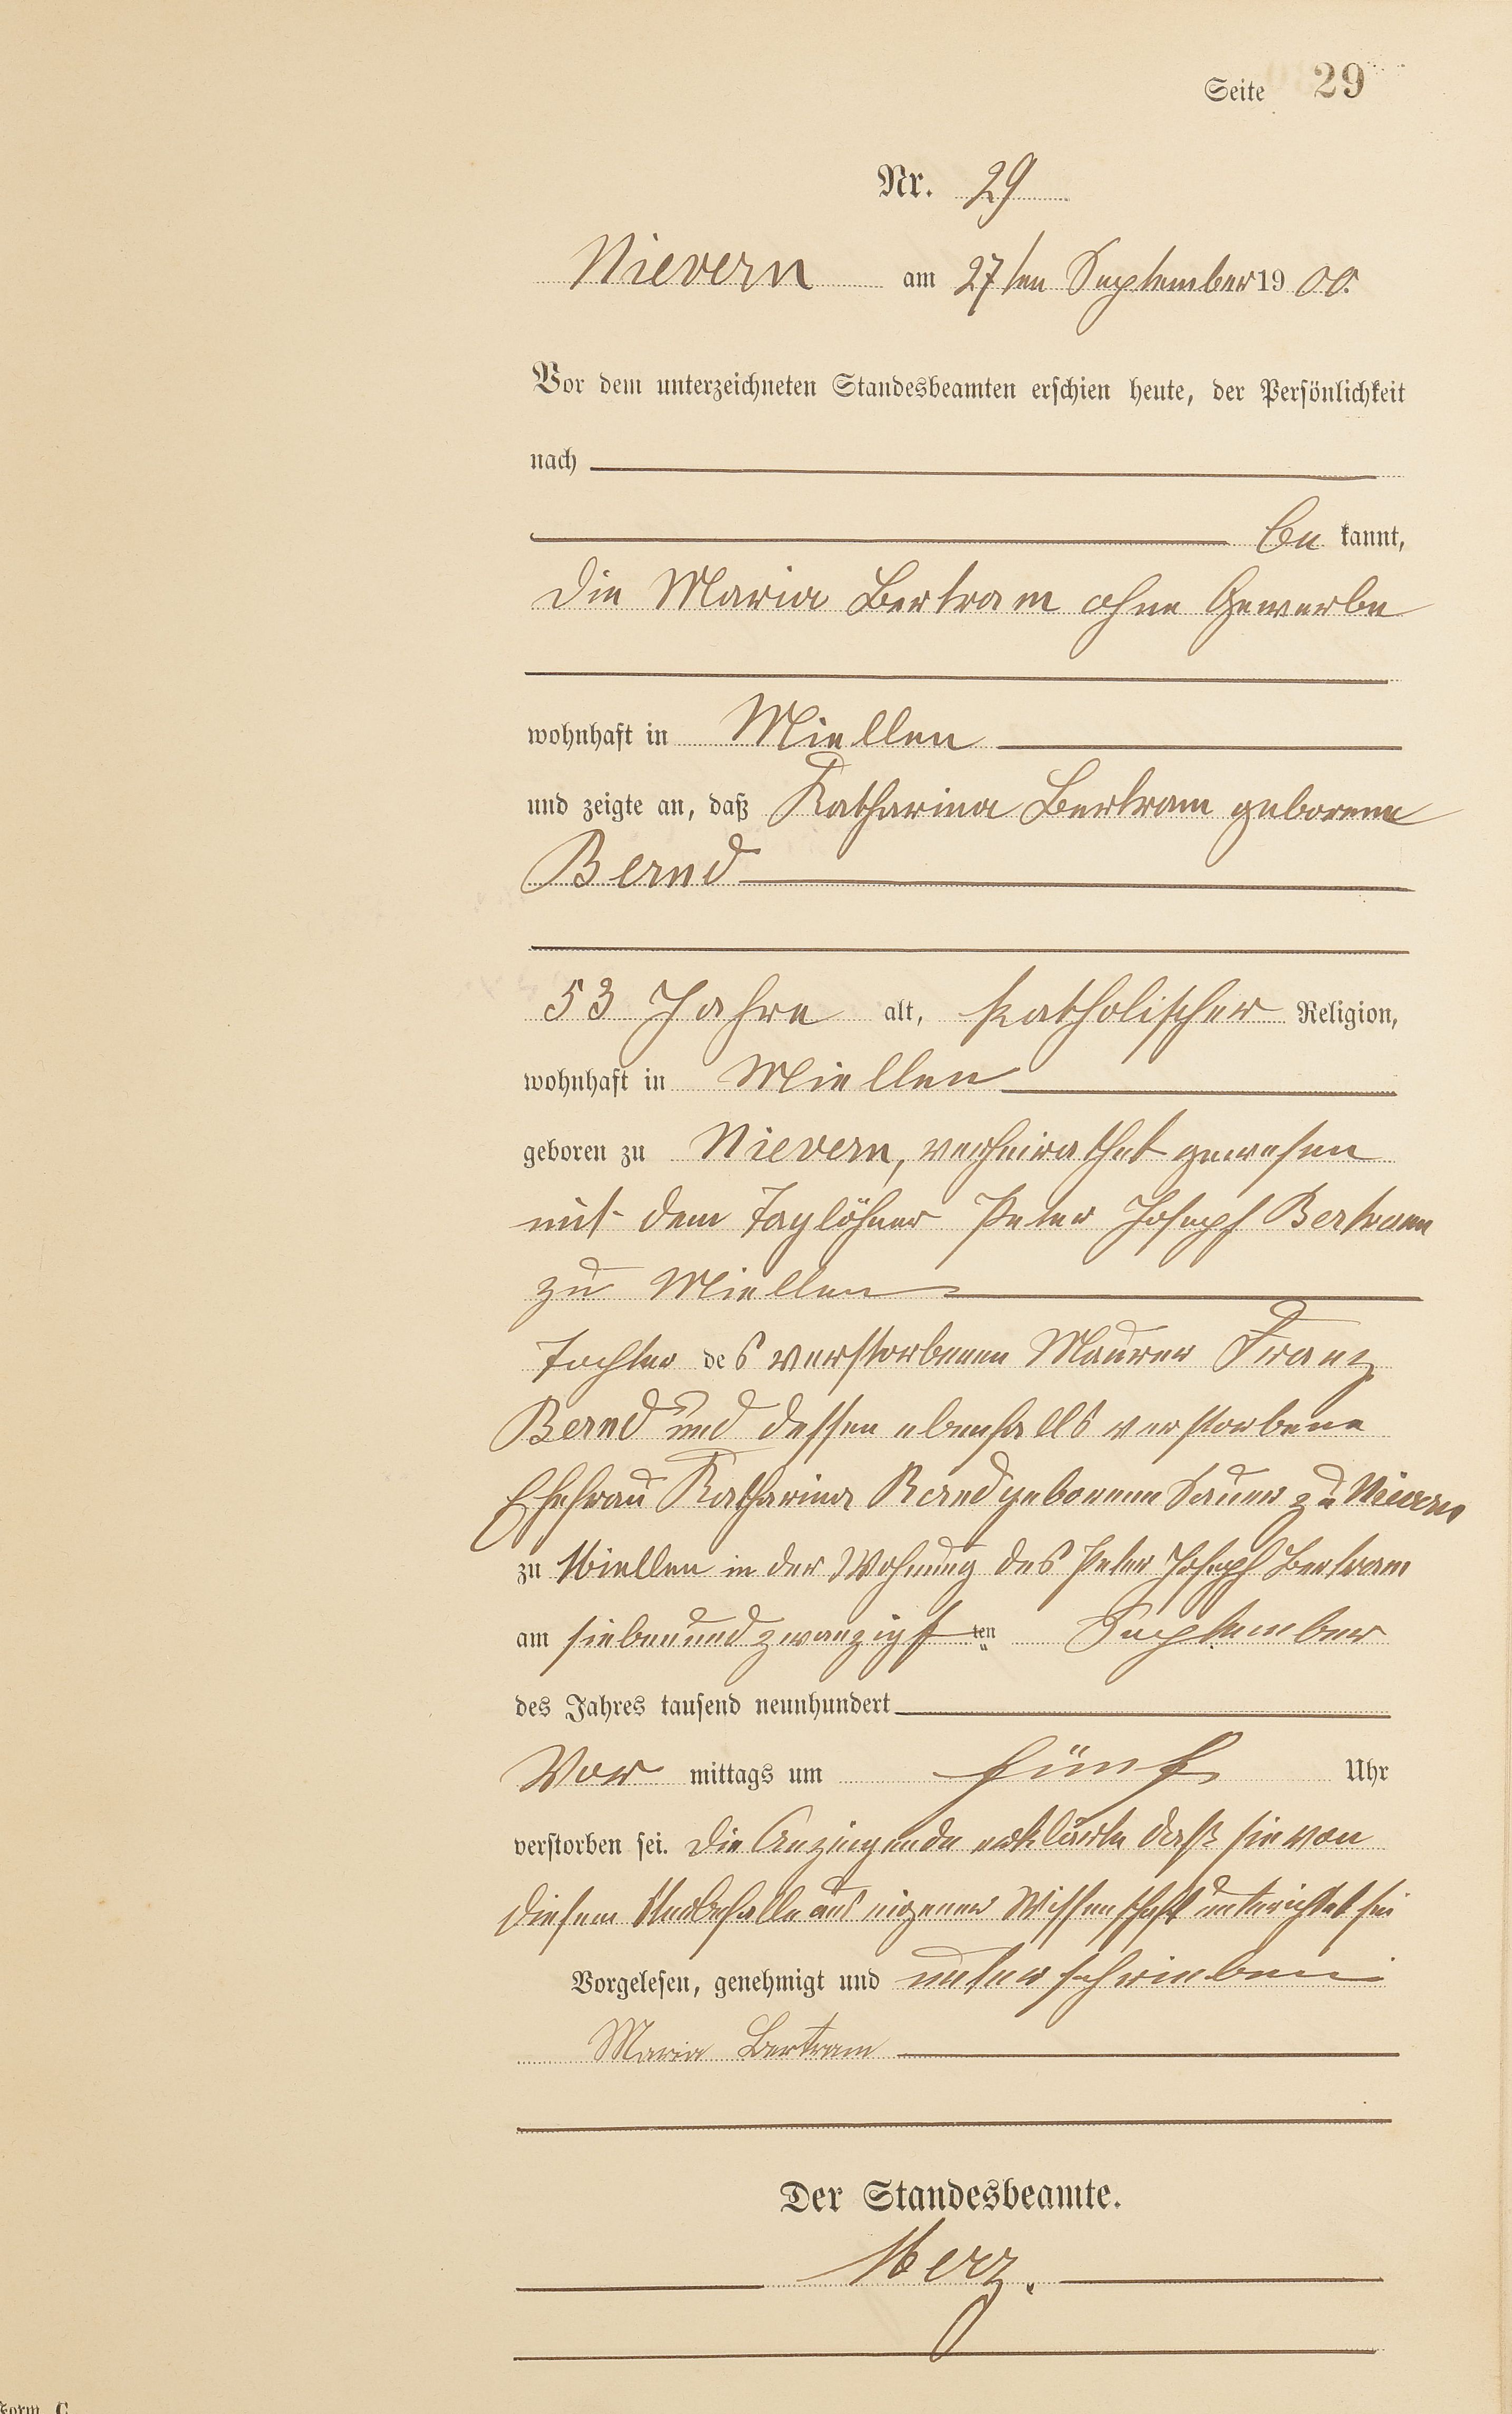 Seite 29
Nr. 29
Nievern am 27ten September 1900.
Vor dem unterzeichneten Standesbeamten erschien heute, der Persönlichkeit
nach
be kannt,
die Maria Bertram ohne Gewerbe
wohnhaft in Miellen
und zeigte an, daß Katharina Bertram geborene
Bernd
53 Jahre alt, katholischer Religion,
wohnhaft in Miellen
geboren zu Nievern, verheirathet gewesen
mit dem Taglöhner Peter Joseph Bertram
zu Miellen
Tochter des verstorbenen Maurer Franz
Bernd und dessen ebenfalls verstorbene
Ehefrau Katharina Bernd geborenen Sauer zu Nievern
zu Miellen in der Wohnung des Peter Joseph Bertram
am siebenundzwanzigsten September
des Jahres tausend neunhundert
Vor mittags um fünf Uhr
verstorben sei. Die Anzeigende erklärte daß sie von
diesem Sterbefalle aus eigener Wissenschaft unterrichtet sei
Vorgelesen, genehmigt und unterschrieben
Maria Bertram
Der Standesbeamte.
Merz.
Form. C